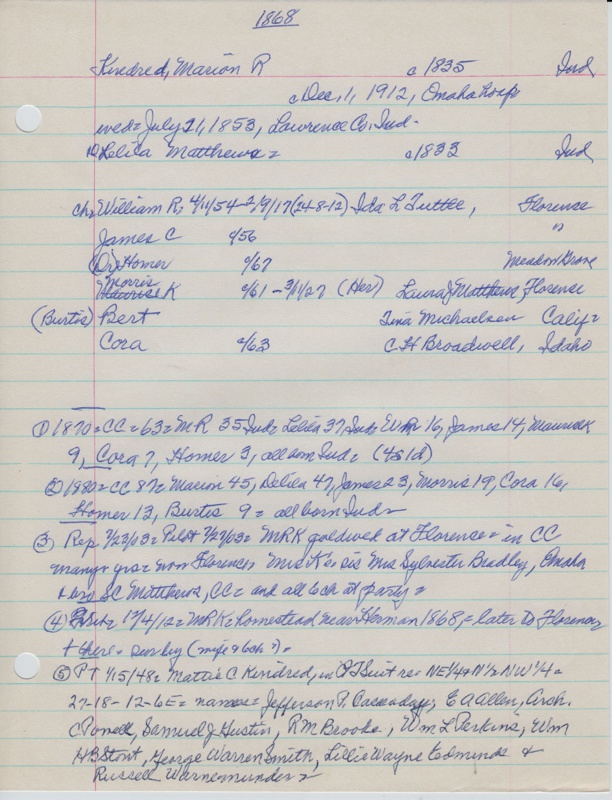 1868
Kindred, Marion R c 1835 Ind
c Dec, 1, 1912, Omaha hosp
wed= July 21, 1853, Lawrence Co. Ind-
Lelila Matthews= c 1833 Ind
ch= William R, 4/11/54-2/9/17 (24-8-12)- Ida L Tuttle, Florence
James C c/56 "
(Dr) Homer c/67 Meadow Grove
Morris K c/61 - 3/11/27 (Her) Laura J Matthews Florence
(Burtis) Bert Tina Michaelsen Calif=
Cora c/63 C H Broadwell, Idaho
① 1870= CC= 63= M R 35 Ind= Lelila 37 Ind= Wm R 16, James 14, Maurice K
9, Cora 7, Homer 3, all born Ind= (4s 1d)
② 1880= CC 87= Marion 45, Delila 47, James 23, Morris 19, Cora 16,
Homer 13, Burtis 9= all born Ind=
③ Rep 7/23/03= Pilot 7/22/03= MRK gold wed at Florence= in CC
many yrs= now Florence= Mrs K's sis Mrs Sylvester Bradley, Omaha
+ bro SC Matthews, CC= and all 6 ch at party=
④ 1/4/12= MRK= homestead near Herman 1868,= later to Florence,
+ there= surv by (wife & 6 ch)=
⑤ PT 1/15/48= Mattie C Kindred, in QT Suit re= NE1/4 N1/2 NW1/4=
27-18-12-6E= names= Jefferson P. Cassaday, E A Allen, Arch.
C Powell, Samuel J Hustin, R M Brooke, Wm L Perkins, Wm
H B Stout, George Warren Smith, Lillie Wayne Edminds &
Russell Warnemunder=